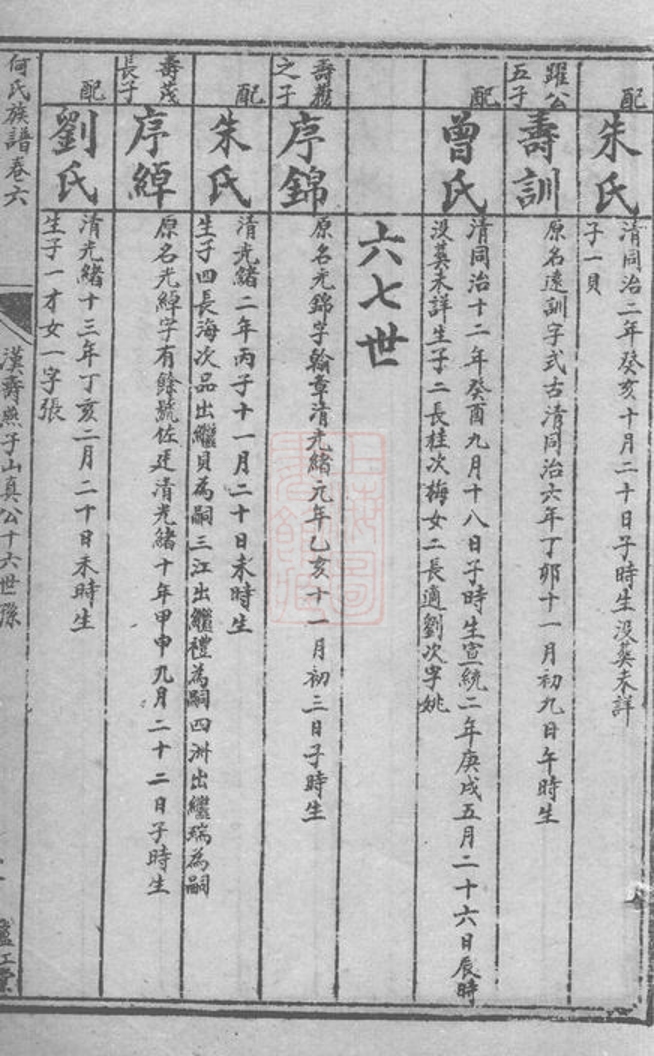 配
朱氏
清同治二年癸亥十月二十日子時生沒葬未詳
子一貝
躍公
五子
壽訓
原名遠訓字式古清同治六年丁卯十一月初九日午時生
配
曾氏
清同治十二年癸酉九月十八日子時生宣統二年庚戌五月二十六日辰時
沒葬未詳生子二長桂次梅女二長適劉次字姚
六七世
壽
之子
序錦
原名元錦字翰章清光緒元年乙亥十一月初三日子時生
配
朱氏
清光緒二年丙子十一月二十日未時生
生子四長海次品出繼貝為嗣三江出繼禮為嗣四洲出繼瑞為嗣
壽茂
長子
序綽
原名光綽字有餘號佐廷清光緒十年甲申九月二十二日子時生
配
劉氏
清光緒十三年丁亥二月二十日未時生
生子一才女一字張
何氏族譜卷六
漢壽燕子山真公十六世孫
廬江堂